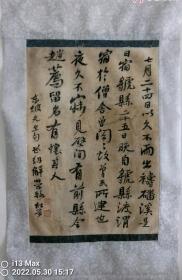 七月二十四日以久不雨出禱磻溪是
日宿虢縣二十五日晚自虢縣渡渭
宿於僧舍曾閣故曾氏所建也
夜久不寐見壁間有前縣令
趙薦留名有懷其人
東坡
i13 Max
2022.05.30 15:17